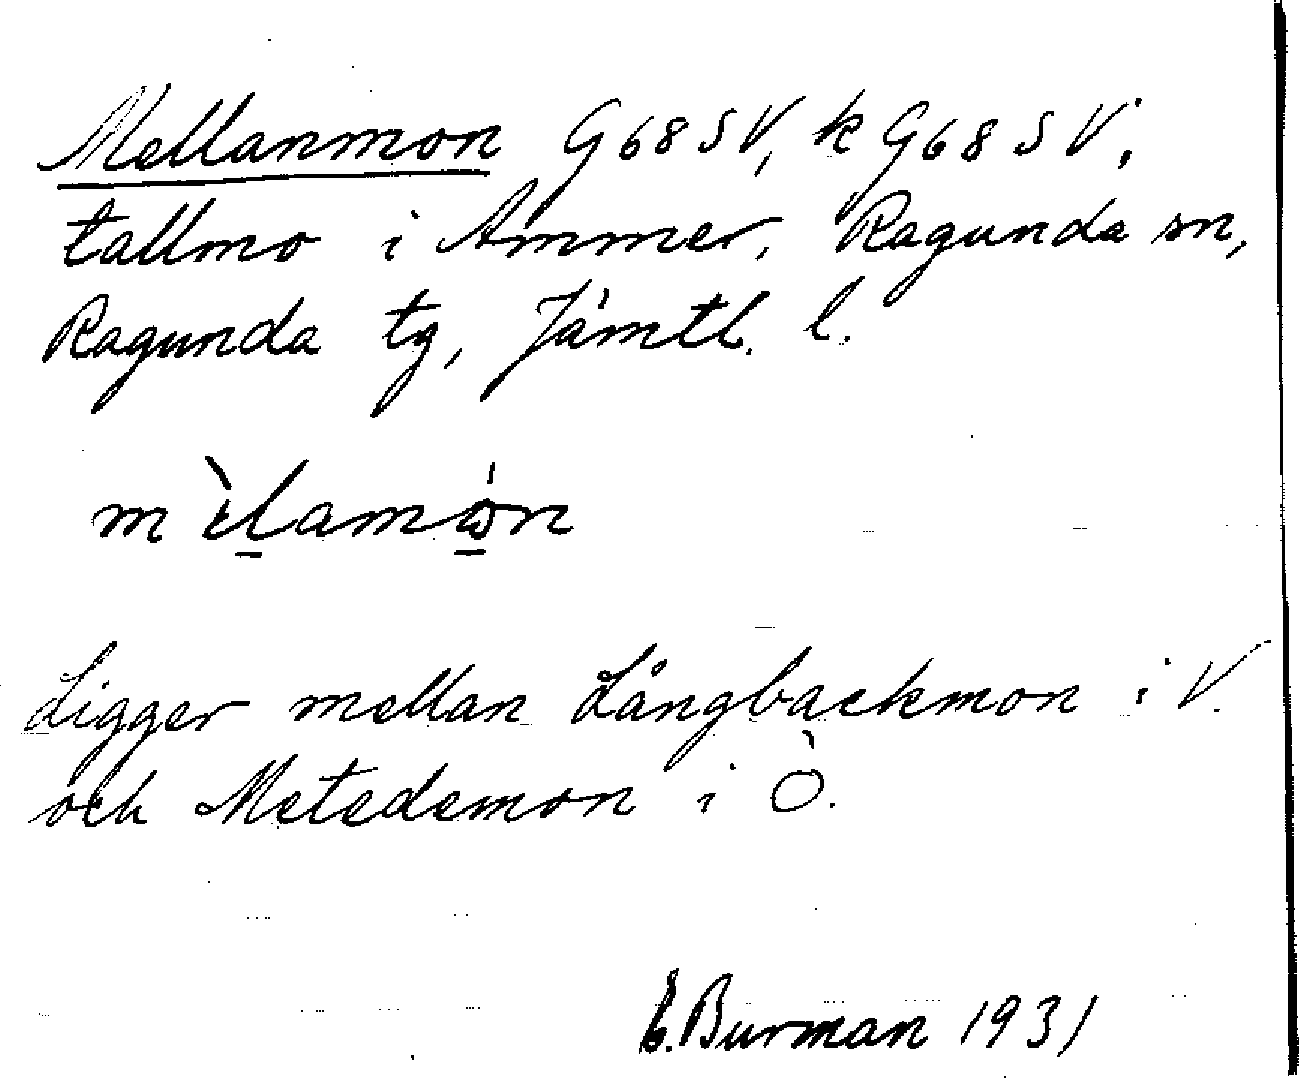 Mellanmon G68SV, k G68SV,
tallmo i Ammer, Ragunda sn,
Ragunda tg, Jämtl. l.
mèlamón
Ligger mellan Långbackmon i V.
och Metedemon i Ö.
E. Burman 1931